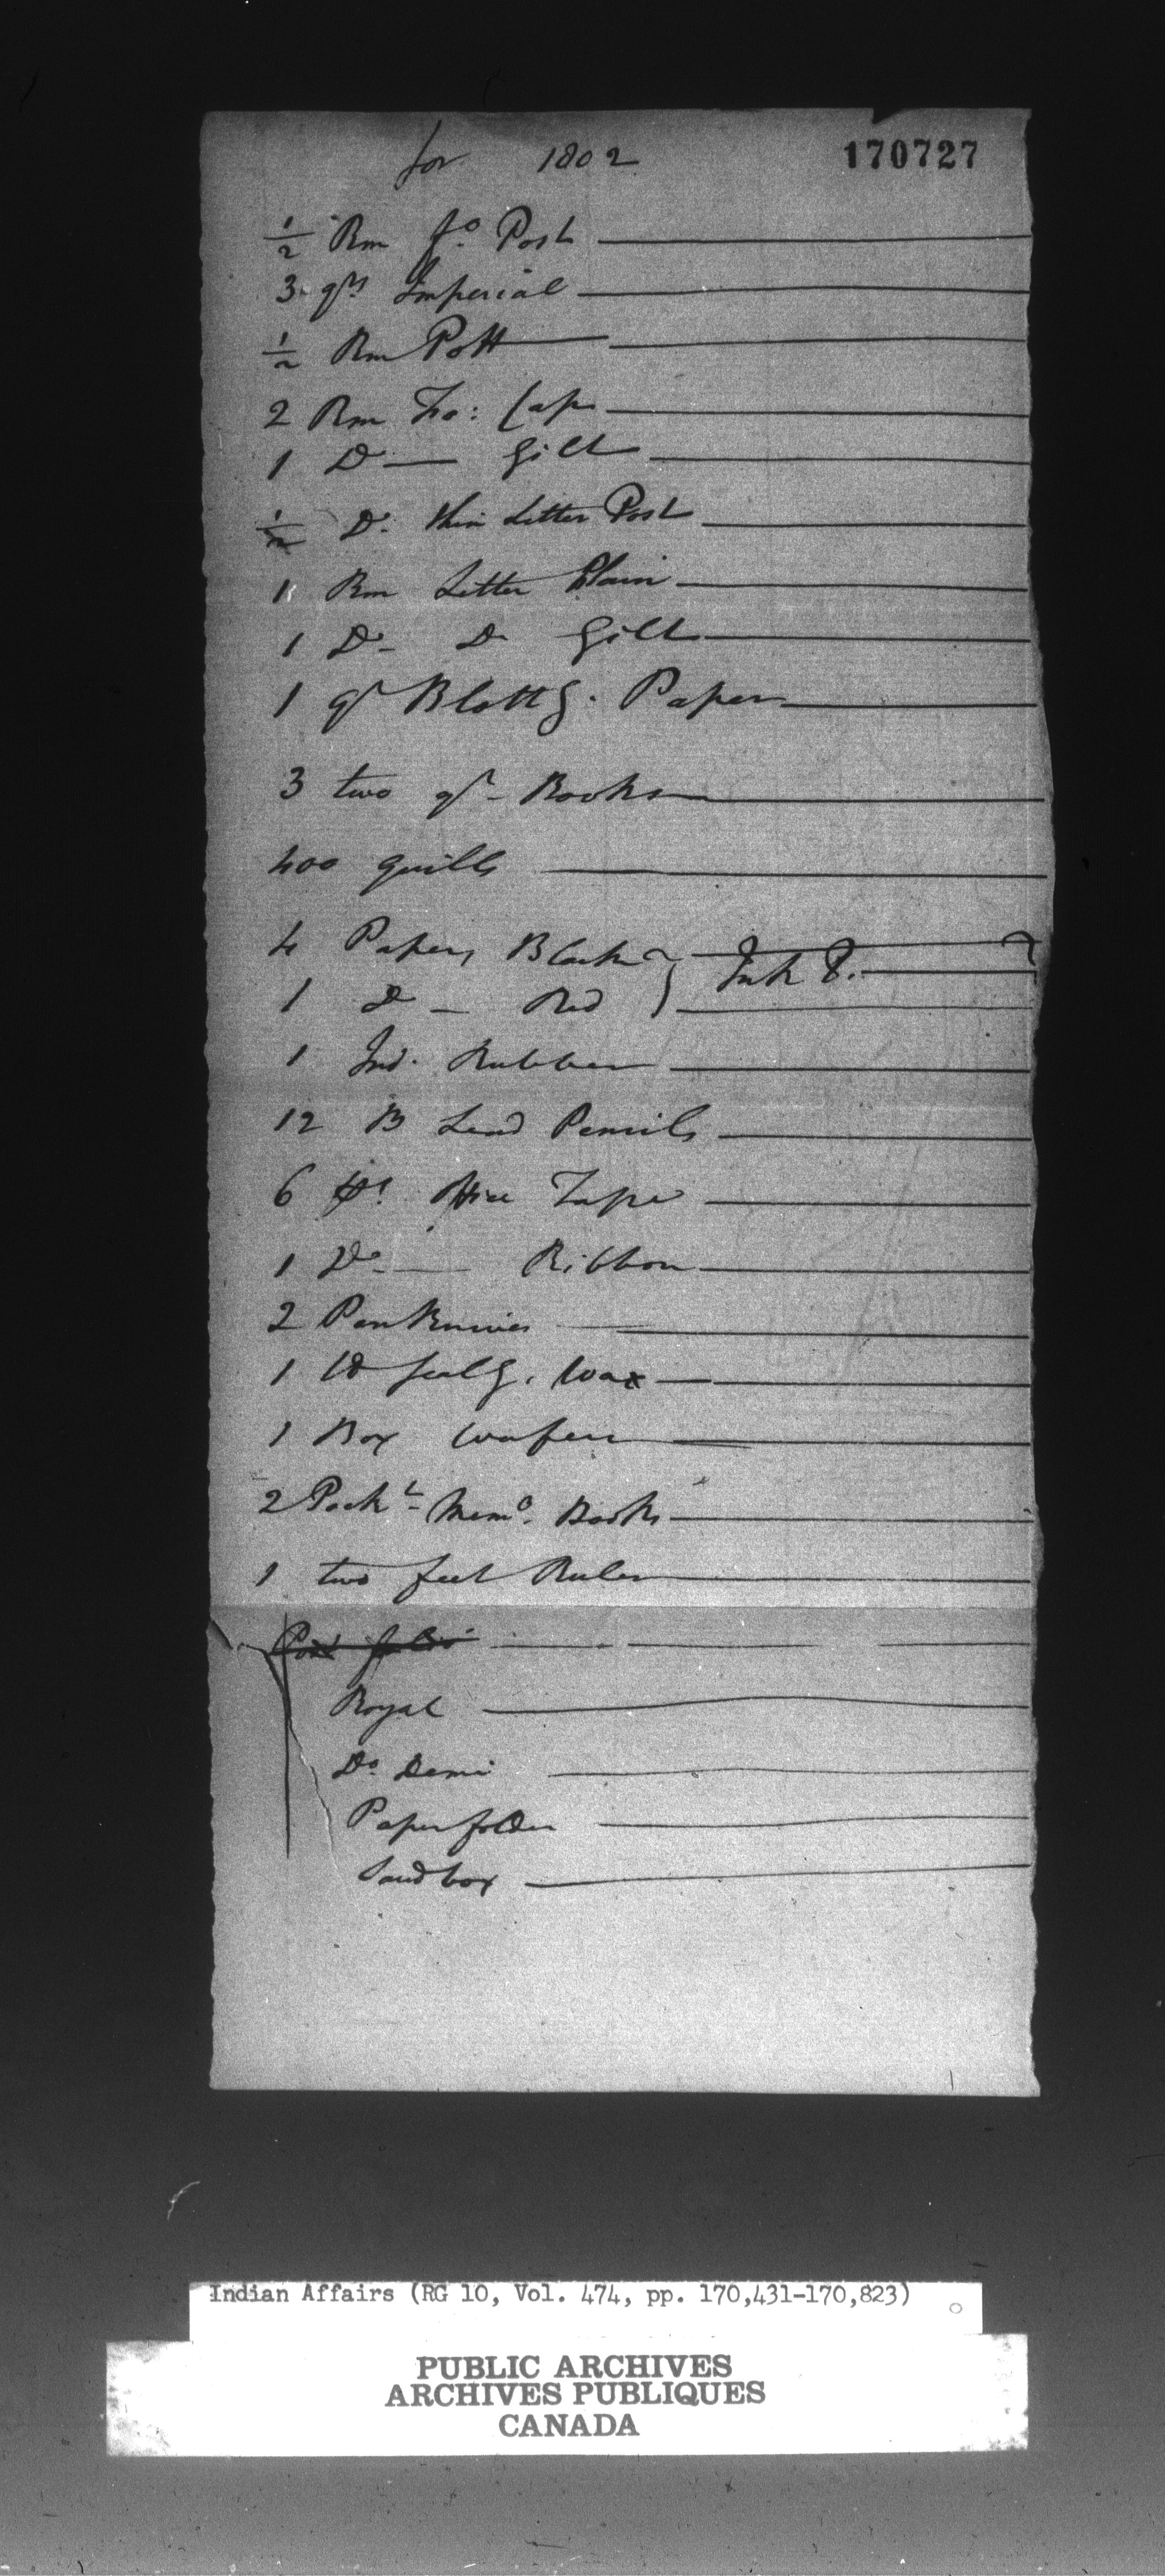 for 1802 170727
½ Rm fo. Post
3 qrs Imperial
½ Rm Pott
2 Rm Fo: Cap
1 Do Gilt
½ Do. thin Letter Post
1 Rm Letter Plain
1 Do Do Gilt
1 qr Blottg. Paper
3 two qr Books
400 quills
4 Papers Black } Ink P.
1 Do Red
1 Ind. Rubber
12 B Lead Pencils
6 Ps. Tape
1 Do Ribbon
2 Penknives
1 lb sealg. Wax
1 Box wafers
2 Pockt Memo. Books
1 two feet Ruler
Port folio
Royal
Do. Demi
Paper folder
Sand box
Indian Affairs (RG 10, Vol. 474, pp. 170,431-170,823)
PUBLIC ARCHIVES
ARCHIVES PUBLIQUES
CANADA